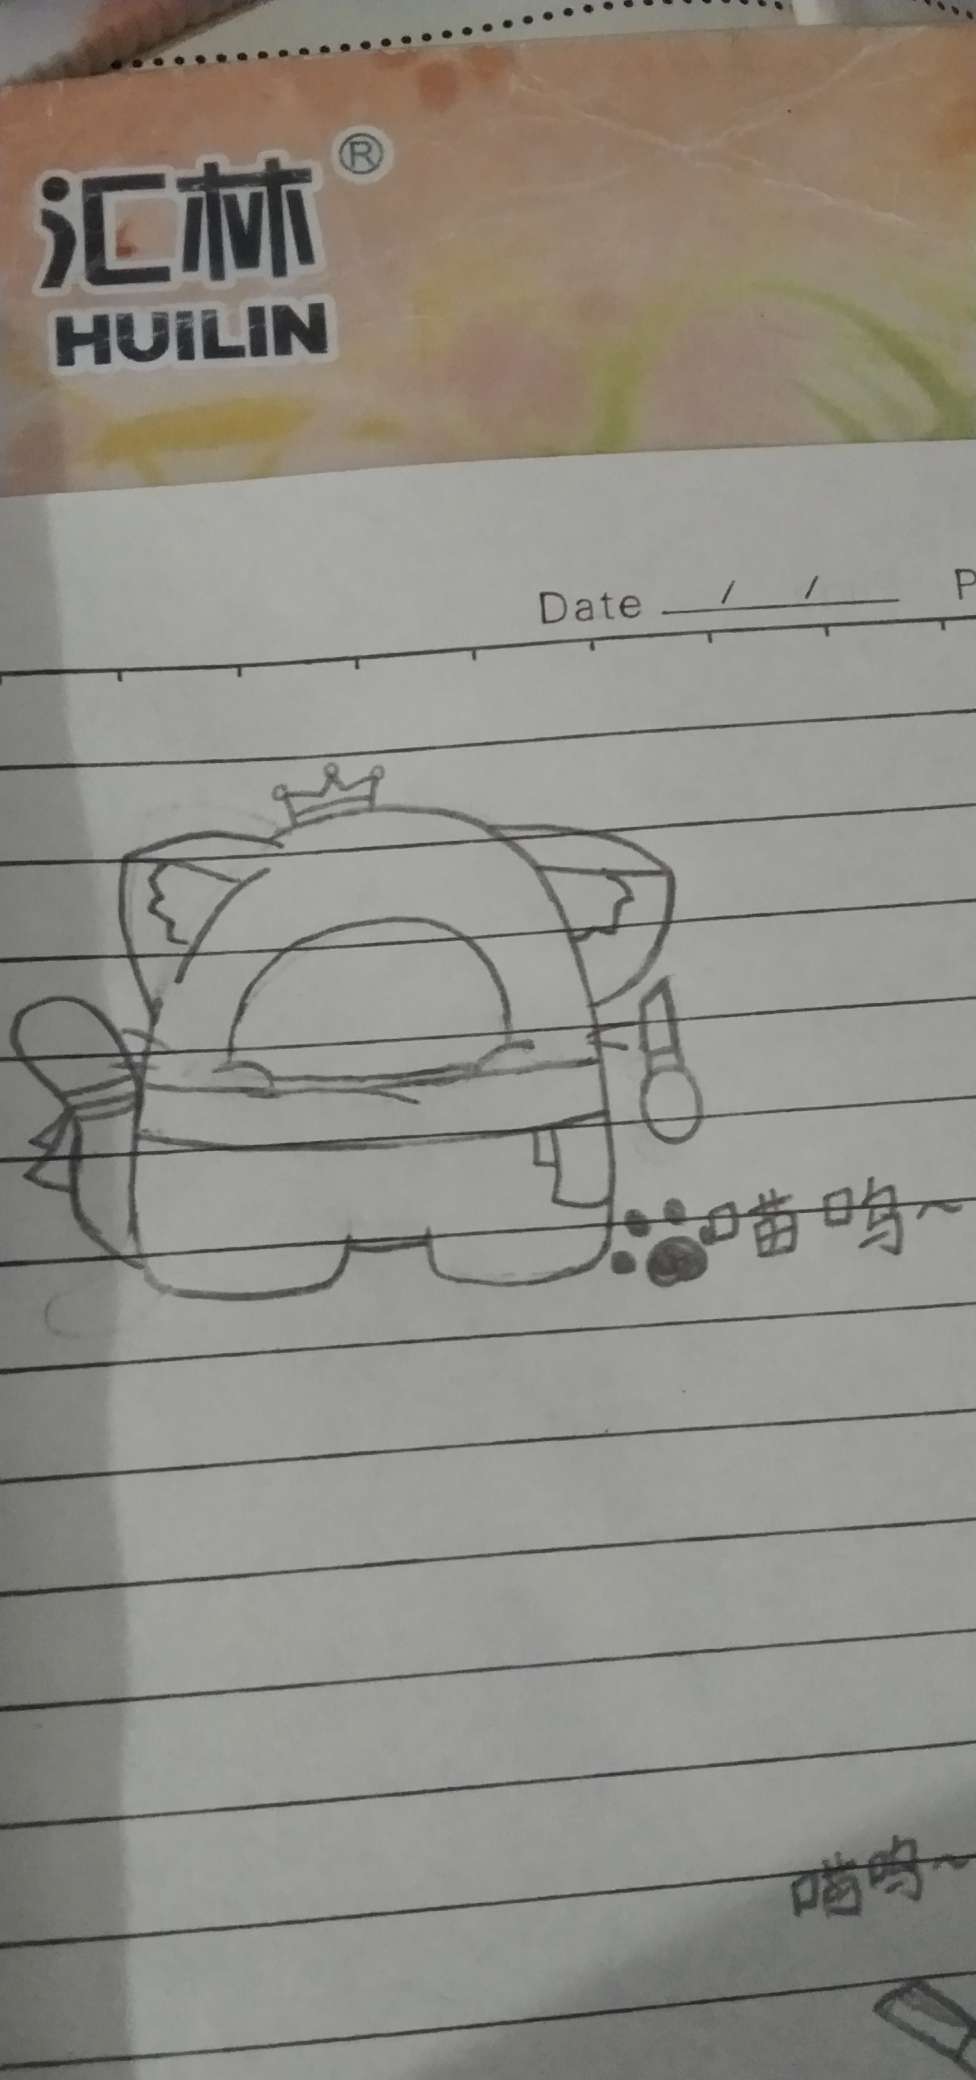 汇林®
HUILIN
Date / /
P
喵呜~
喵呜~